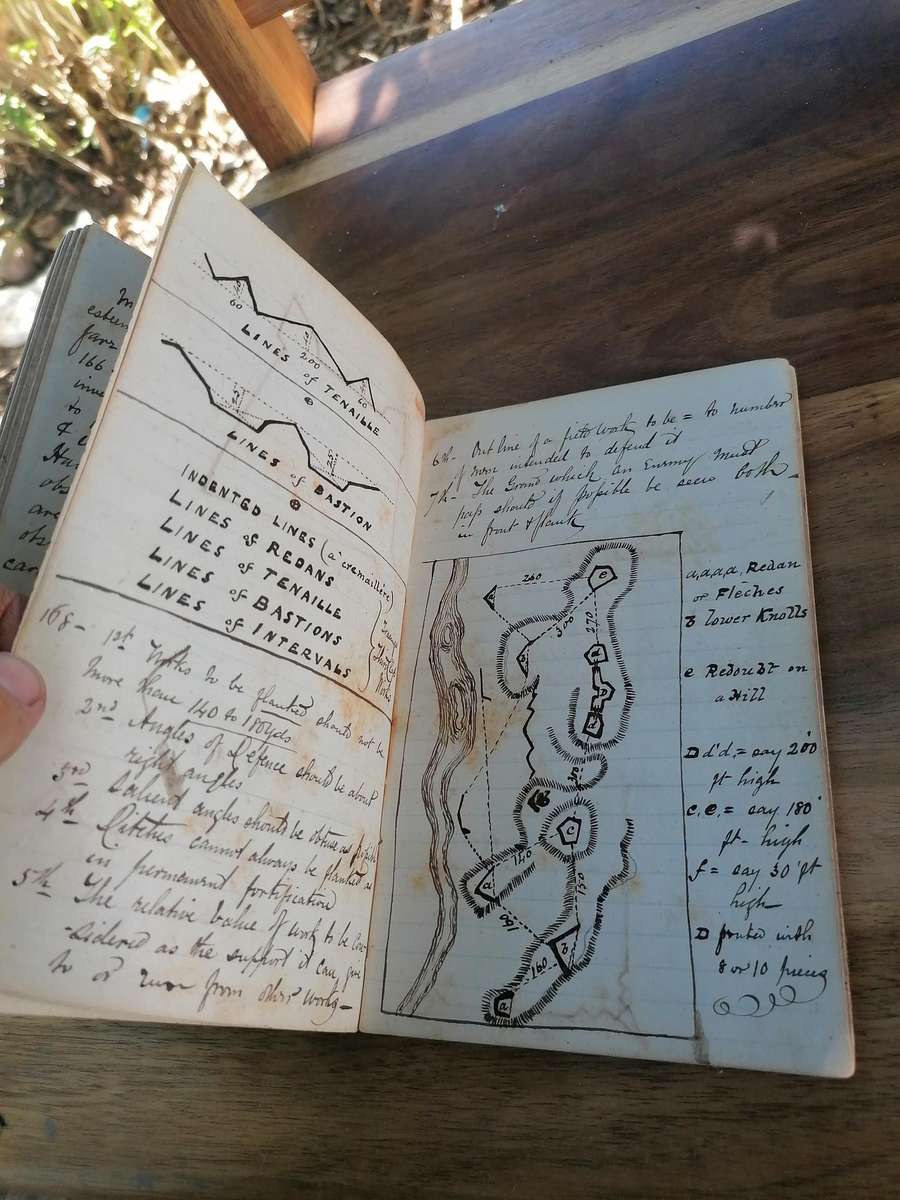 60
200
60
LINES of TENAILLE
LINES of BASTION
INDENTED LINES (a cremaillère)
LINES of REDANS
LINES of TENAILLE
LINES of BASTIONS
LINES of INTERVALS
168 - 1st Works to be flanked should not be
more than 140 to 180yds
2nd Angles of Defence should be about
right angles
3rd Salient angles should be obtuse as possible
4th Ditches cannot always be flanked as
in permanent fortification
5th The relative value of work to be con-
-sidered as the support it can give
to or from other works -
6th - Outline of a field work to be = to number
of men intended to defend it
7th - The Ground which an Enemy must
pass should if possible be seen both
in front & flank
260
300
270
e
b
d
d
30
c
140
150
a
160
b
160
a
a,a,a,a, Redan
or Flèches
3 lower Knolls
e Redoubt on
a Hill
D d'd, = say 200
ft high
c, e, = say 180
ft - high
f = say 30 ft
high
D fronted with
8 or 10 pieces
In
esteem
farz
166
inve
to
&
Hav
obs
are
obs
car